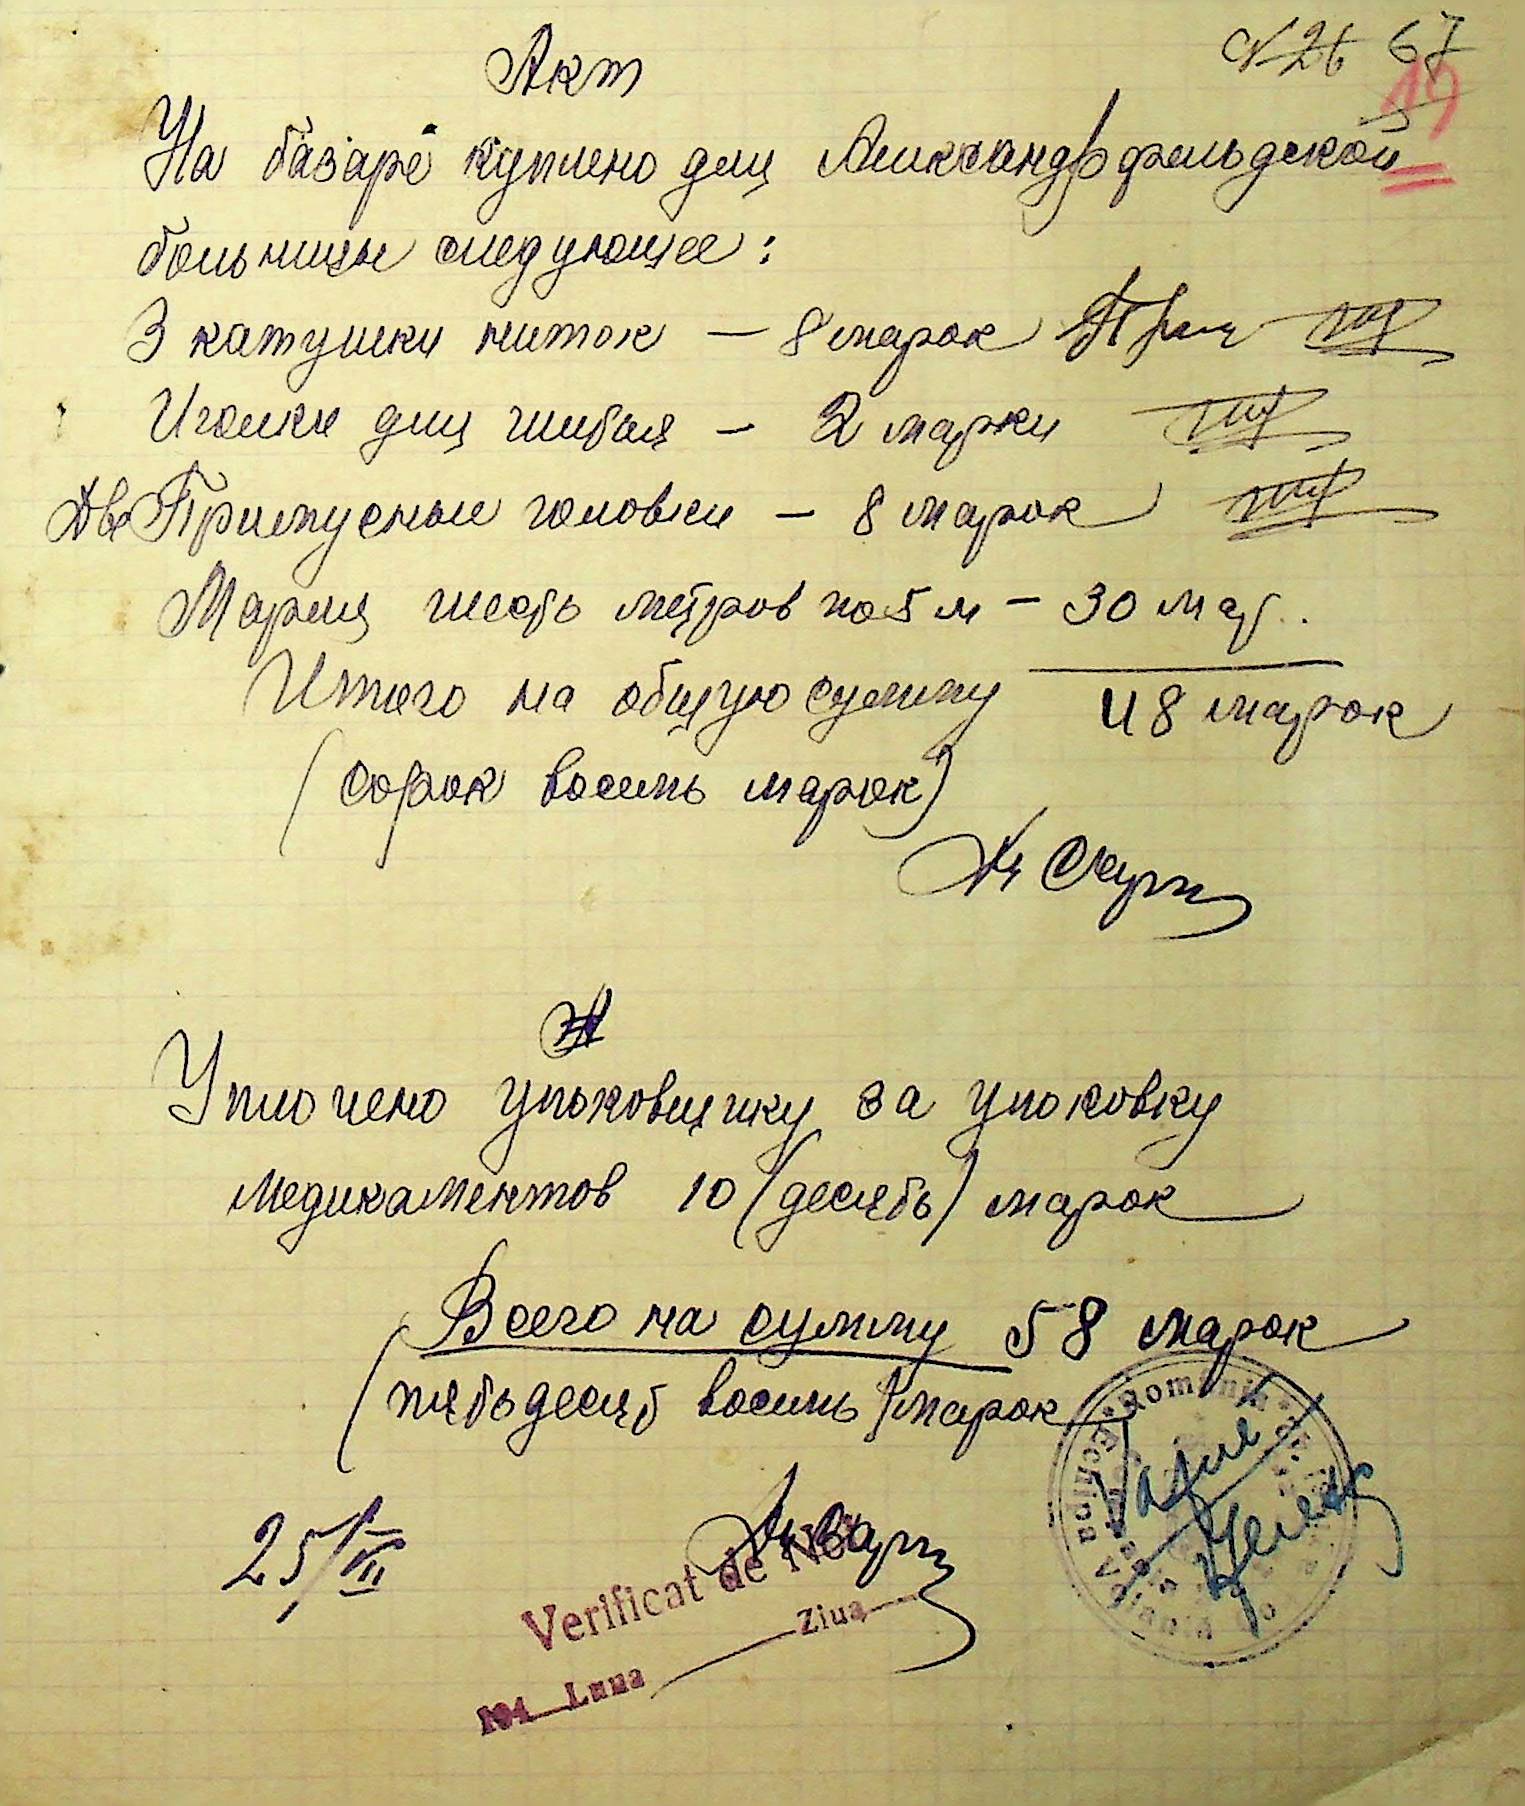 № 26 67
19
Акт
На базаре куплено для Александрфельдской
больницы следующее:
3 катушки ниток — 8 марок
Иголки для шитья — 2 марки
Две Примусные головки — 8 марок
Марля шесть метров по 5 м — 30 мар.
Итого на общую сумму 48 марок
(сорок восемь марок)
Уплочено упаковщику за упаковку
медикаментов 10 (десять) марок
Всего на сумму 58 марок
(пятьдесят восемь) марок
25/III
Verificat de Noi
194 Luna Ziua